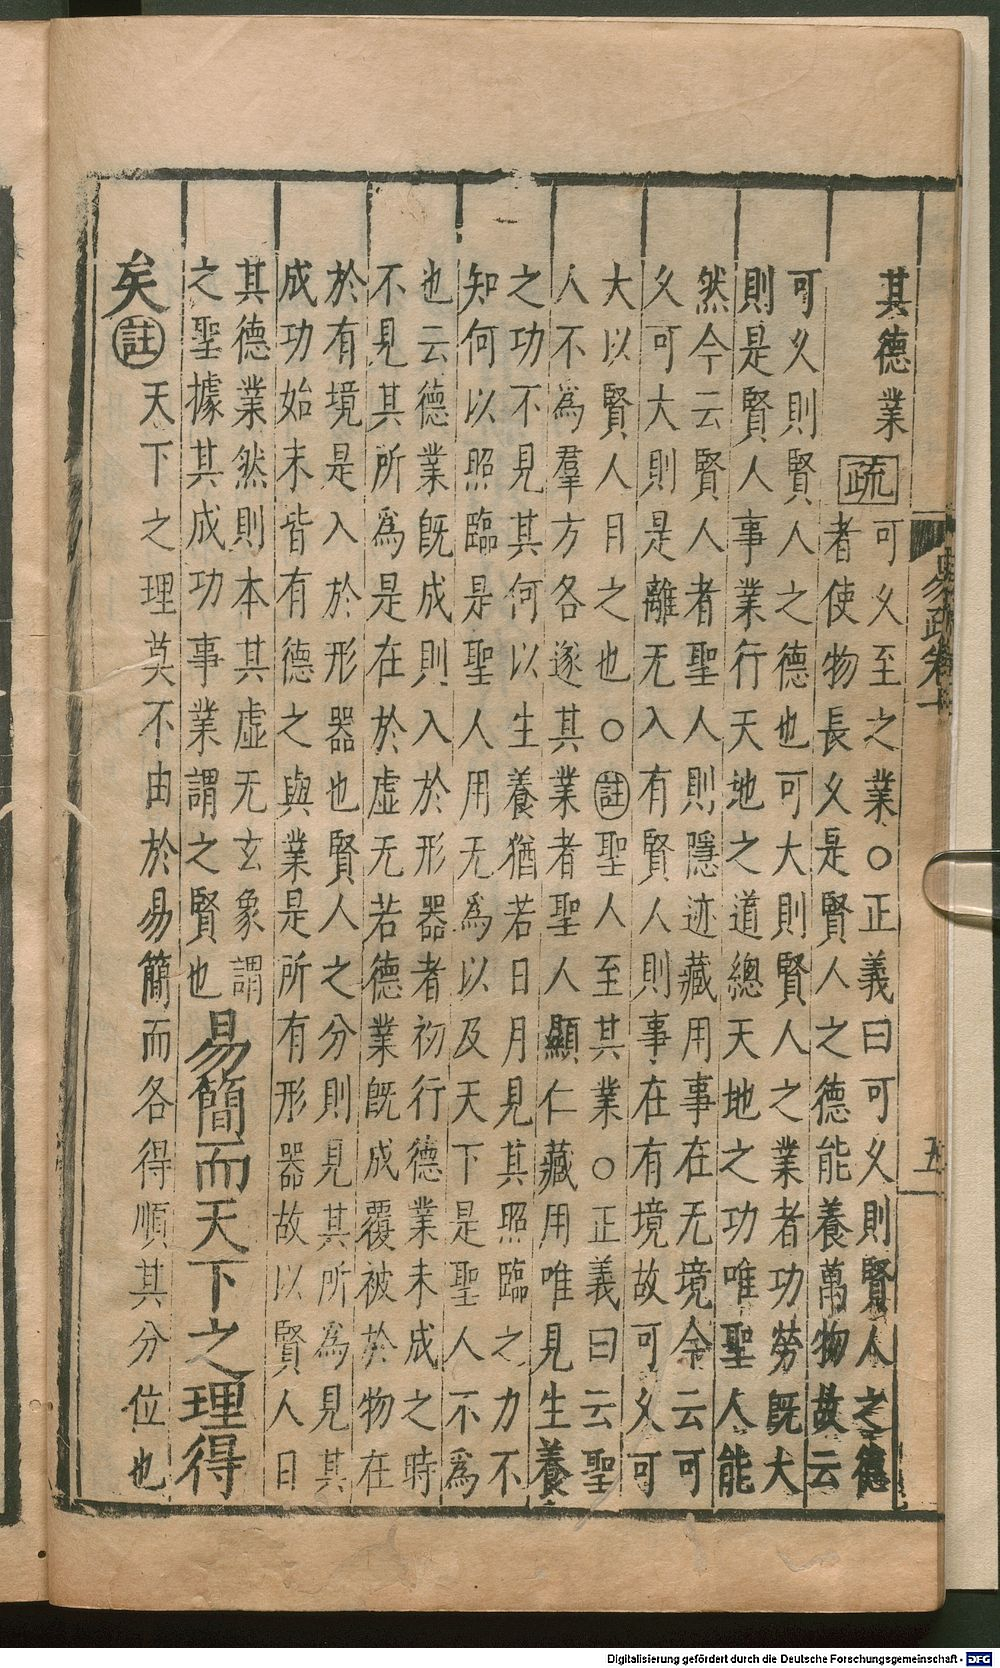 其德業疏可乆至之業○正義曰可乆則賢人之德
者使物長乆是賢人之德能養萬物故云
可乆則賢人之德也可大則賢人之業者功勞既大
則是賢人事業行天地之道總天地之功唯聖人能
然今云賢人者聖人則隱迹藏用事在无境今云可
乆可大則是離无入有賢人則事在有境故可乆可
大以賢人目之也○註聖人至其業○正義曰云聖
人不為羣方各遂其業者聖人顯仁藏用唯見生養
之功不見其何以生養猶若日月見其照臨之力不
知何以照臨是聖人用无為以及天下是聖人不為
也云德業既成則入於形器者初行德業未成之時
不見其所為是在於虛无若德業既成覆被於物在
於有境是入於形器也賢人之分則見其所為見其
成功始末皆有德之與業是所有形器故以賢人目
其德業然則本其虛无玄象謂
之聖據其成功事業謂之賢也易簡而天下之理得
矣註天下之理莫不由於易簡而各得順其分位也
五
Digitalisierung gefördert durch die Deutsche Forschungsgemeinschaft - DFG